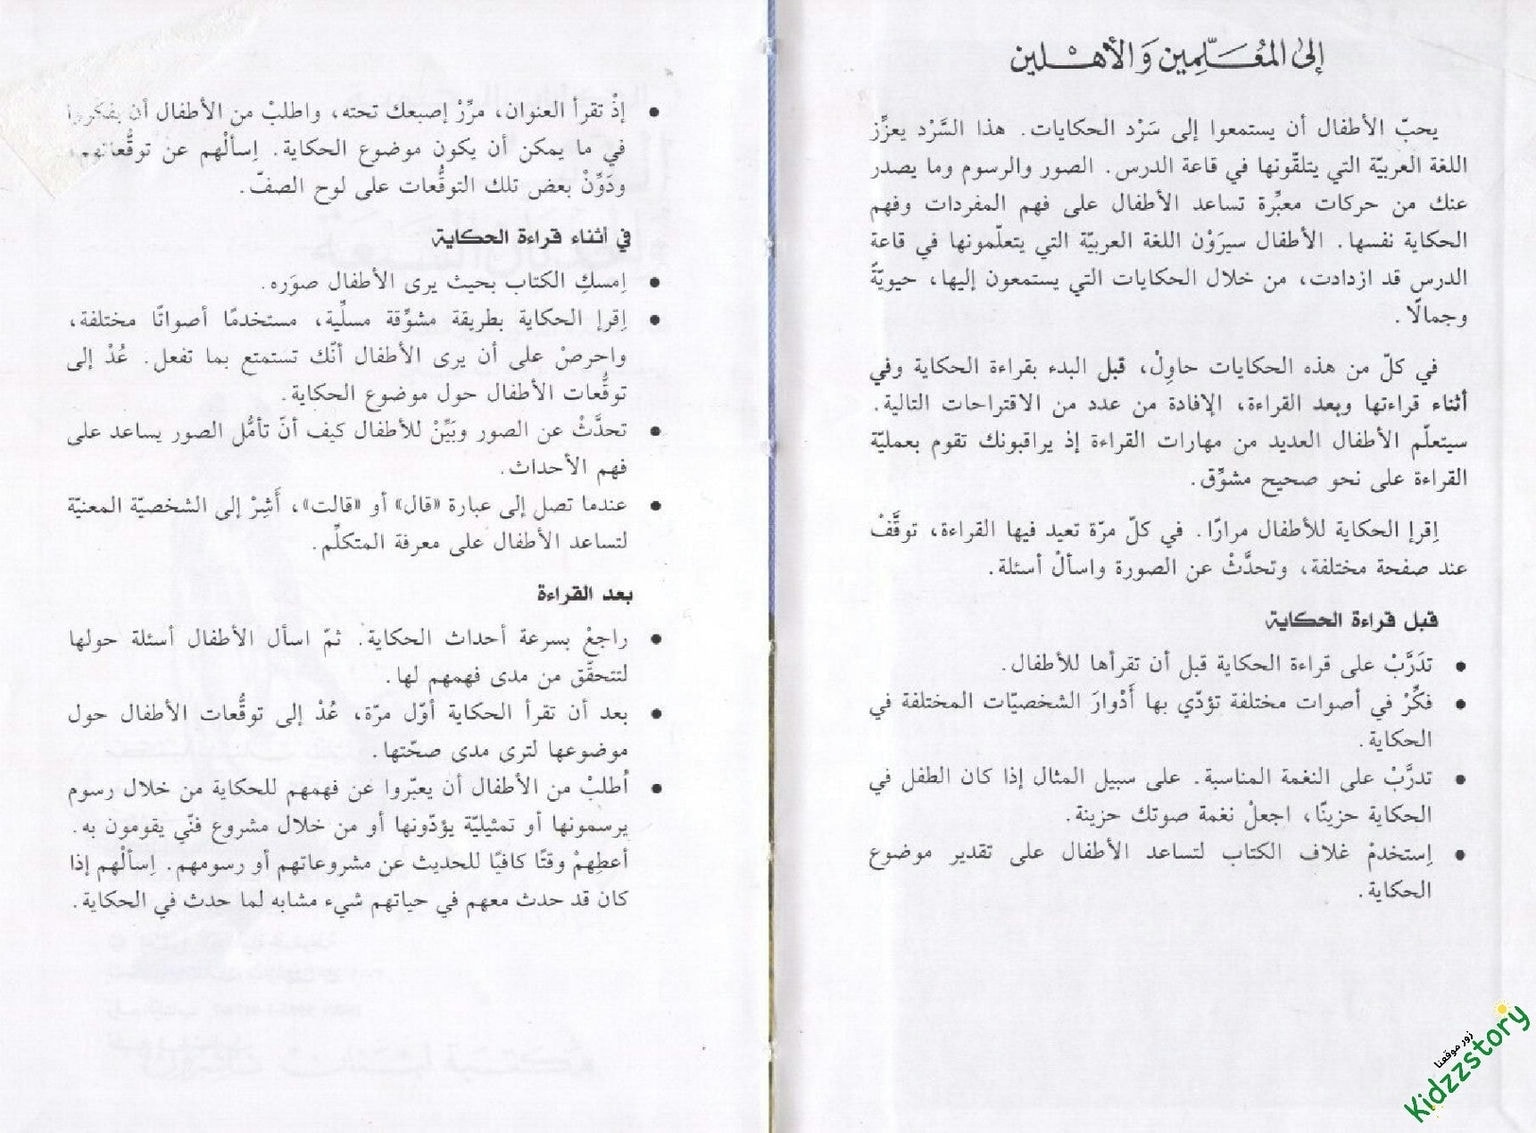 إلى المُعَلِّمِين وَالأهْلين
يحبّ الأطفال أن يستمعوا إلى سَرْد الحكايات. هذا السَّرْد يعزِّز
اللغة العربيّة التي يتلقّونها في قاعة الدرس. الصور والرسوم وما يصدر
عنك من حركات معبِّرة تساعد الأطفال على فهم المفردات وفهم
الحكاية نفسها. الأطفال سيرَوْن اللغة العربيّة التي يتعلّمونها في قاعة
الدرس قد ازدادت، من خلال الحكايات التي يستمعون إليها، حيويّةً
وجمالًا.
في كلّ من هذه الحكايات حاوِلْ، قبل البدء بقراءة الحكاية وفي
أثناء قراءتها وبعد القراءة، الإفادة من عدد من الاقتراحات التالية.
سيتعلّم الأطفال العديد من مهارات القراءة إذ يراقبونك تقوم بعمليّة
القراءة على نحو صحيح مشوِّق.
اِقرإ الحكاية للأطفال مرارًا. في كلّ مرّة تعيد فيها القراءة، توقَّفْ
عند صفحة مختلفة، وتحدَّثْ عن الصورة واسألْ أسئلة.
قبل قراءة الحكاية
• تدَرَّبْ على قراءة الحكاية قبل أن تقرأها للأطفال.
• فكِّرْ في أصوات مختلفة تؤدّي بها أَدْوارَ الشخصيّات المختلفة في
الحكاية.
• تدرَّبْ على النغمة المناسبة. على سبيل المثال إذا كان الطفل في
الحكاية حزينًا، اجعلْ نغمة صوتك حزينة.
• اِستخدمْ غلاف الكتاب لتساعد الأطفال على تقدير موضوع
الحكاية.
• إذْ تقرأ العنوان، مرِّرْ إصبعك تحته، واطلبْ من الأطفال أن يفكروا
في ما يمكن أن يكون موضوع الحكاية. اِسألْهم عن توقُّعاتهم،
ودَوِّنْ بعض تلك التوقُّعات على لوح الصفّ.
في أثناء قراءة الحكاية
• اِمسكِ الكتاب بحيث يرى الأطفال صوَره.
• اِقرإ الحكاية بطريقة مشوِّقة مسلِّية، مستخدمًا أصواتًا مختلفة،
واحرصْ على أن يرى الأطفال أنّك تستمتع بما تفعل. عُدْ إلى
توقُّعات الأطفال حول موضوع الحكاية.
• تحدَّثْ عن الصور وبَيِّنْ للأطفال كيف أنّ تأمُّل الصور يساعد على
فهم الأحداث.
• عندما تصل إلى عبارة «قال» أو «قالت»، أَشِرْ إلى الشخصيّة المعنيّة
لتساعد الأطفال على معرفة المتكلِّم.
بعد القراءة
• راجعْ بسرعة أحداث الحكاية. ثمّ اسأل الأطفال أسئلة حولها
لتتحقَّق من مدى فهمهم لها.
• بعد أن تقرأ الحكاية أوّل مرّة، عُدْ إلى توقُّعات الأطفال حول
موضوعها لترى مدى صحّتها.
• اُطلبْ من الأطفال أن يعبّروا عن فهمهم للحكاية من خلال رسوم
يرسمونها أو تمثيليّة يؤدّونها أو من خلال مشروع فنّي يقومون به.
أعطِهمْ وقتًا كافيًا للحديث عن مشروعاتهم أو رسومهم. اِسألْهم إذا
كان قد حدث معهم في حياتهم شيء مشابه لما حدث في الحكاية.
زور موقعنا
Kidzzstory